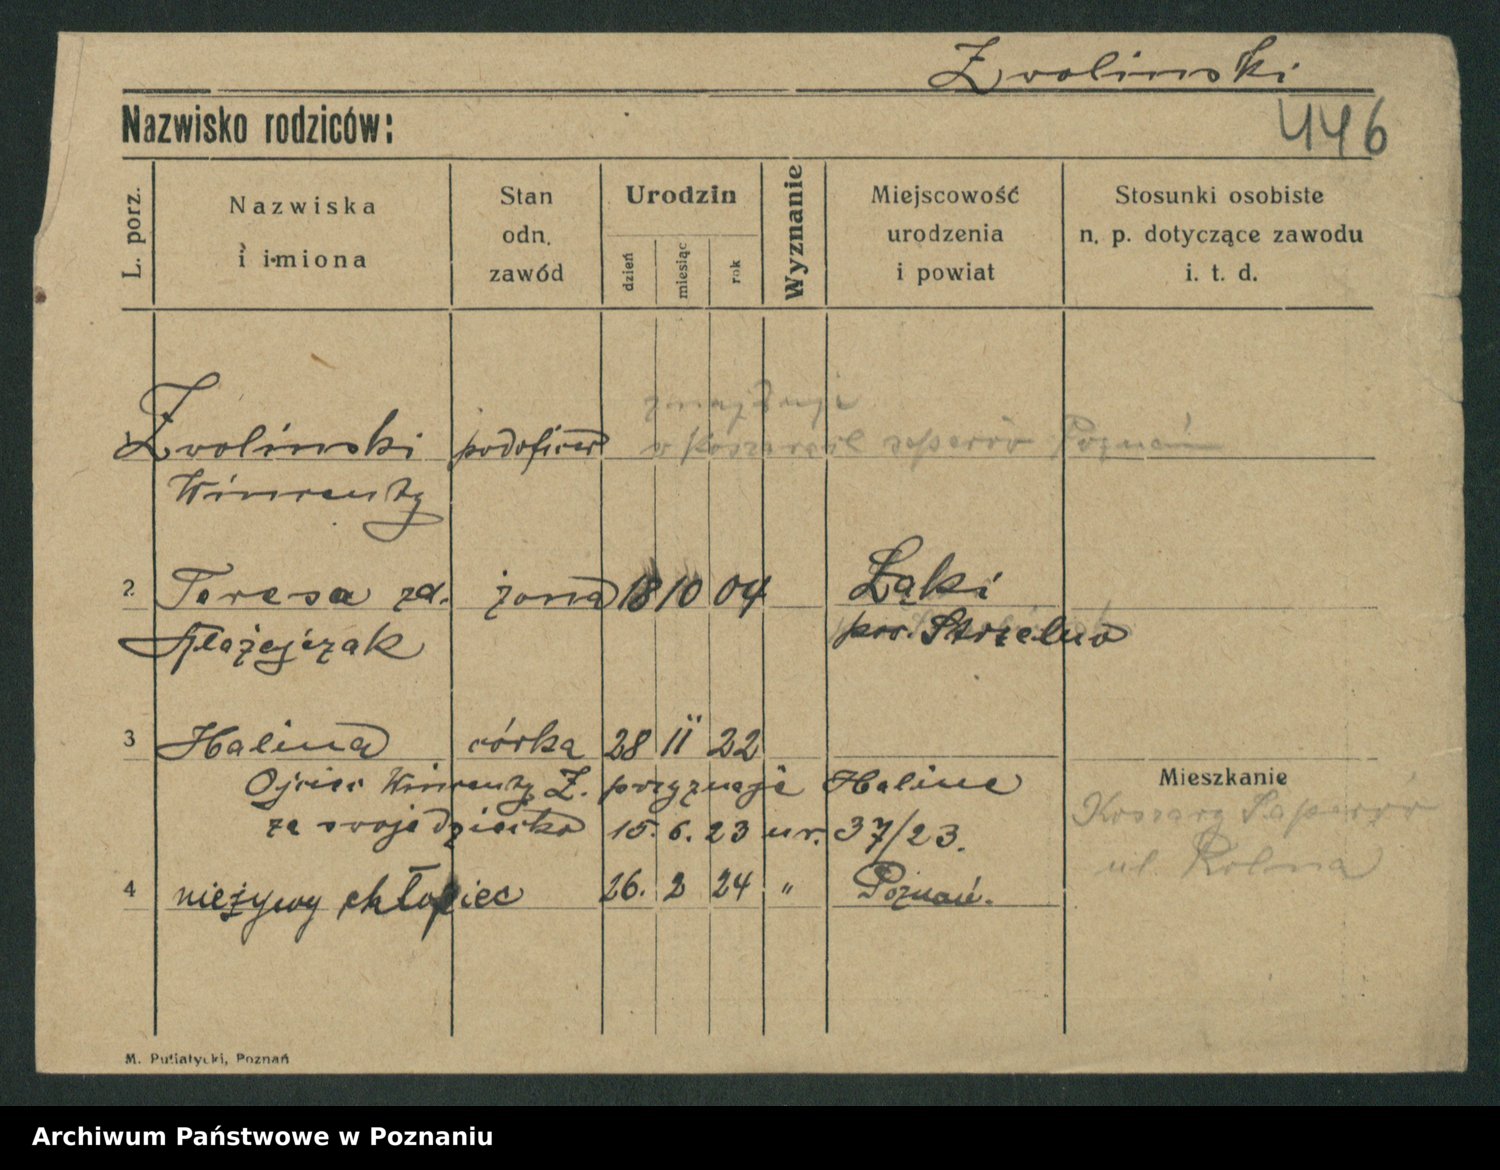 Zwolinski
Nazwisko rodziców:
446
L. porz.
Nazwiska
i imiona
Stan
odn.
zawód
Urodzin
dzień
miesiąc
rok
Wyznanie
Miejscowość
urodzenia
i powiat
Stosunki osobiste
n. p. dotyczące zawodu
i. t. d.
1 Zwolinski podoficer
w Koszarach saperów Poznań
Wincenty
2 Teresa zd. żona 18 10 04 Łąki
Błażejczak pow. Strzelno
3 Halina córka 28 11 22
Mieszkanie
Ojciec Wincenty Z. przyznaje Halinę
Koszary Saperów
za swoje dziecko 15. 6. 23 ur. 37/23.
ul. Rolna
4 nieżywy chłopiec 26. 2 24 " Poznań.
M. Putiatycki, Poznań
Archiwum Państwowe w Poznaniu